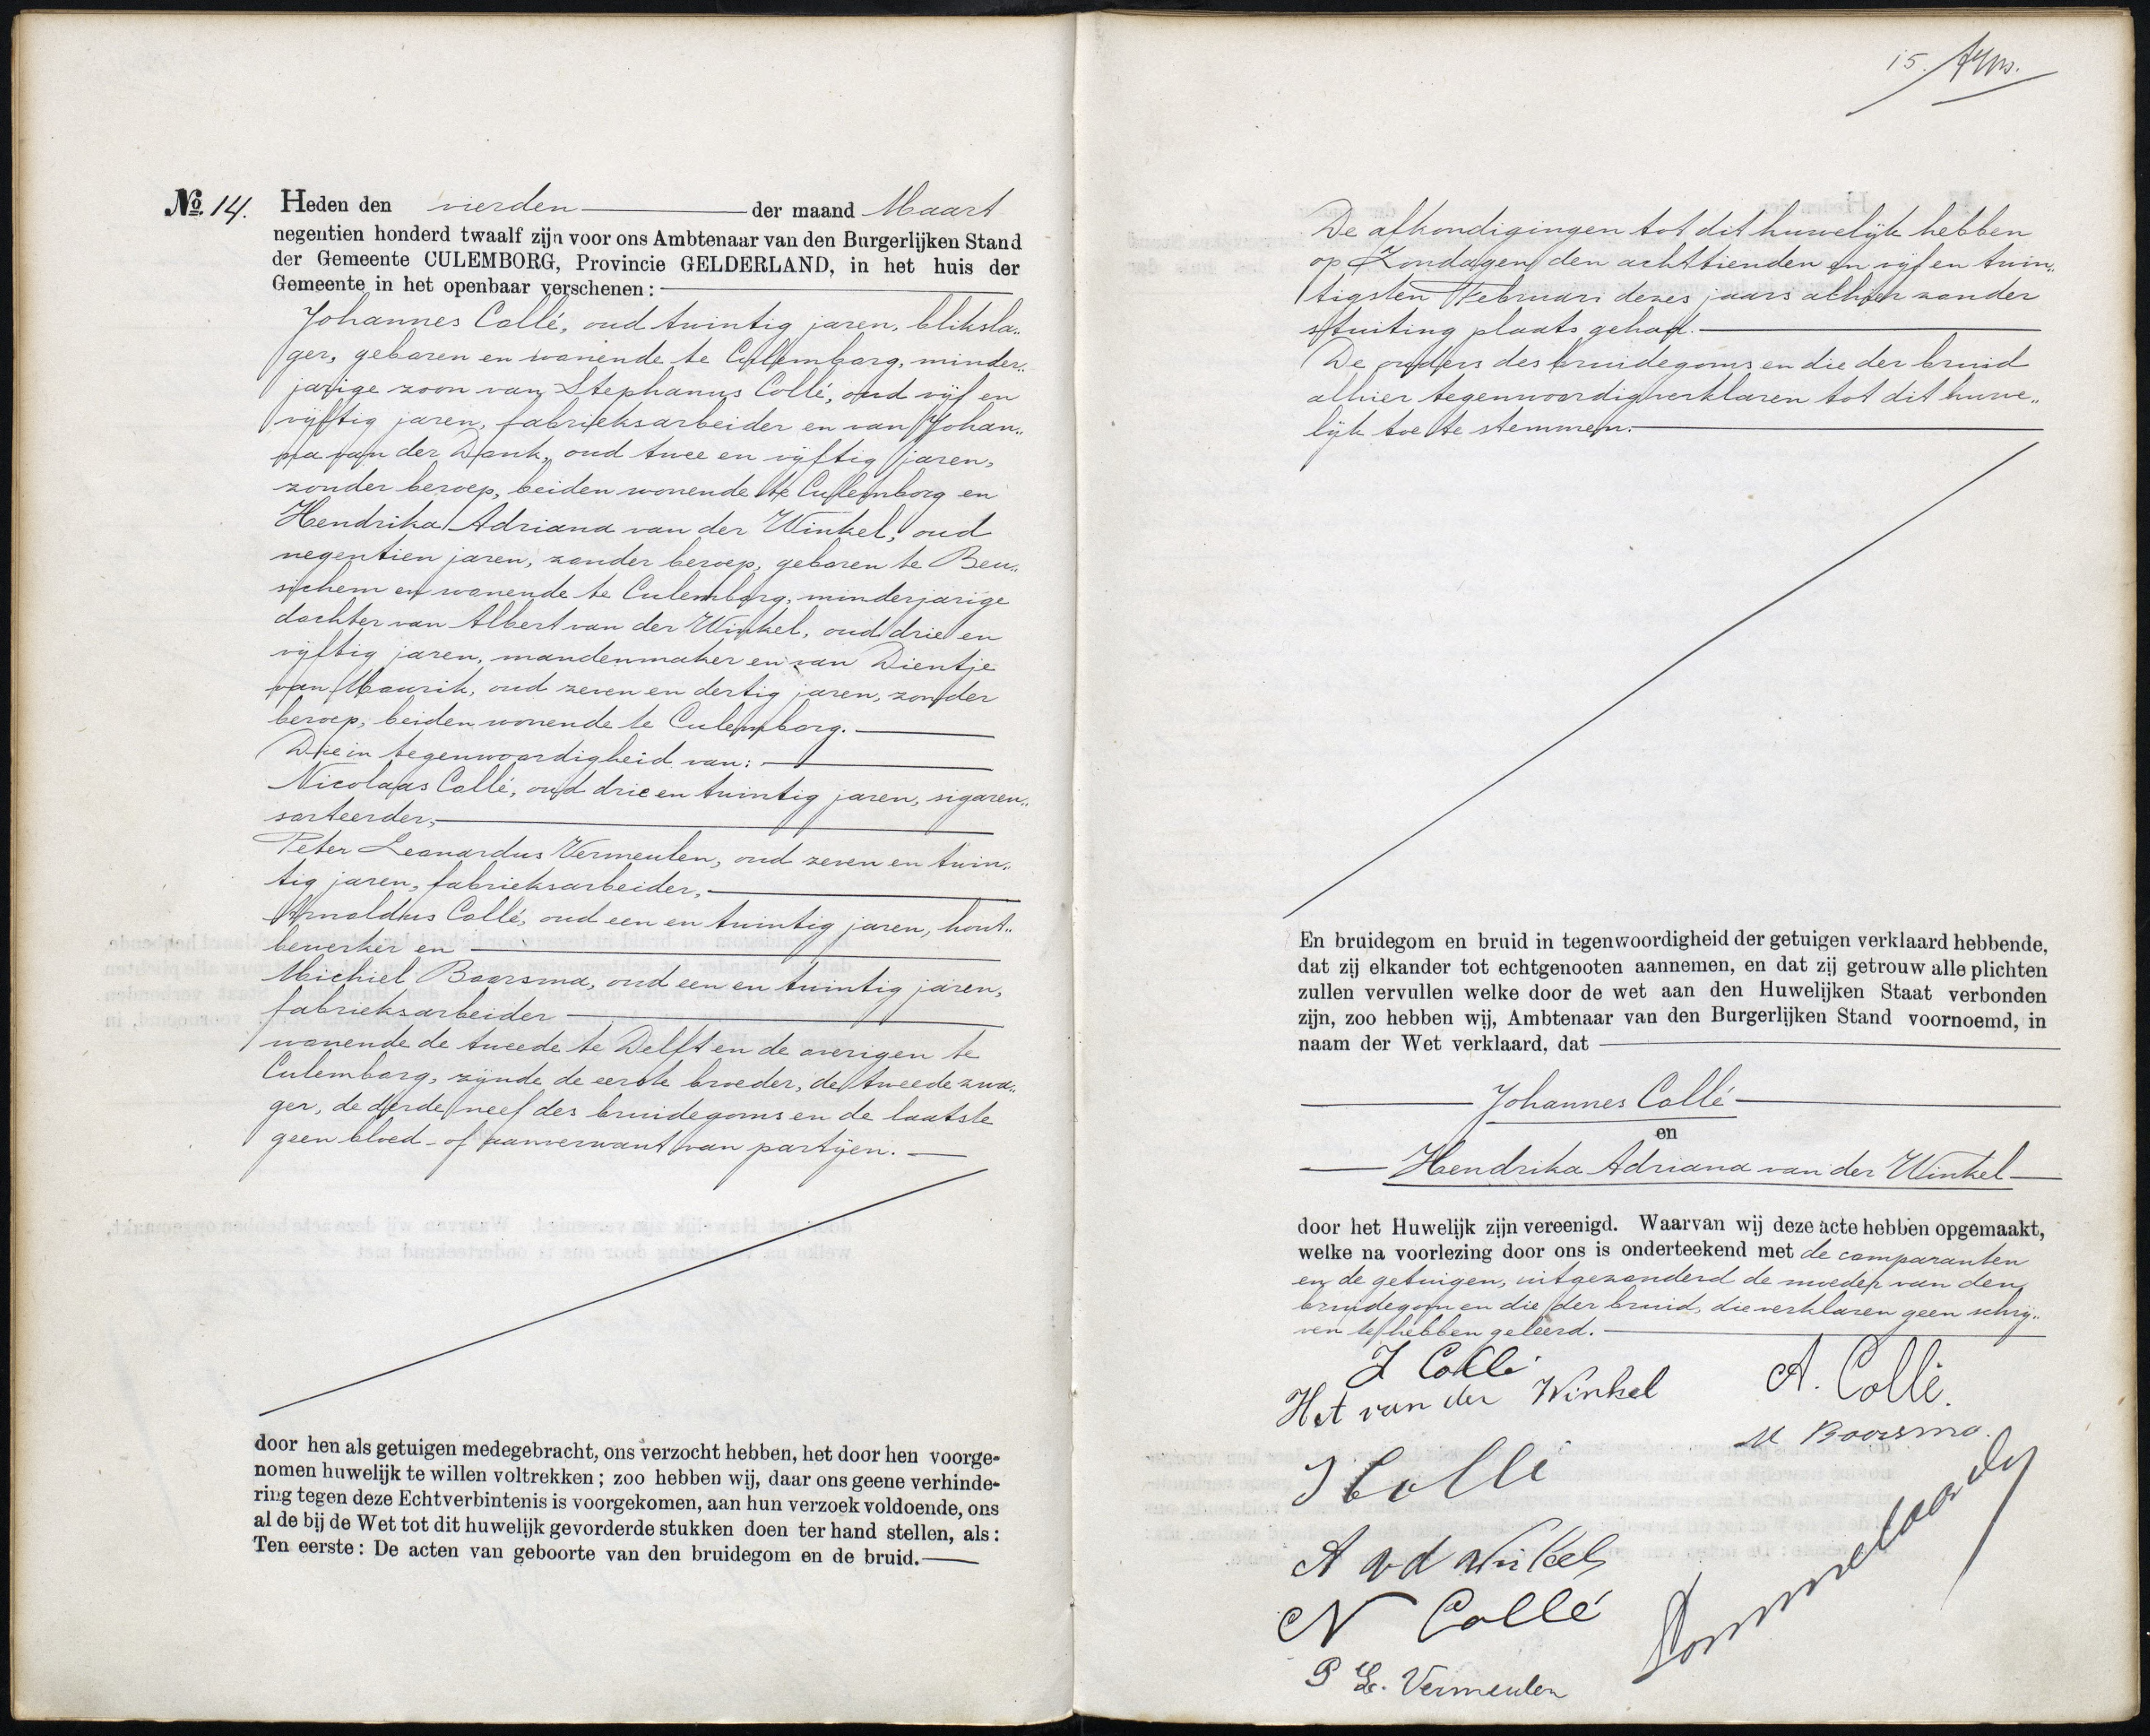 No. 14. Heden den vierden der maand Maart
negentien honderd twaalf zijn voor ons Ambtenaar van den Burgerlijken Stand
der Gemeente CULEMBORG, Provincie GELDERLAND, in het huis der
Gemeente in het openbaar verschenen:
Johannes Collé, oud twintig jaren, bliksla„
ger, geboren en wonende te Culemborg, minder„
jarige zoon van Stephanus Collé, oud vijf en
vijftig jaren, fabrieksarbeider en van Johan„
na van der Donk, oud twee en vijftig jaren,
zonder beroep, beiden wonende te Culemborg en
Hendrika Adriana van der Winkel, oud
negentien jaren, zonder beroep, geboren te Beu„
sichem en wonende te Culemborg, minderjarige
dochter van Albert van der Winkel, oud drie en
vijftig jaren, mandenmaker en van Dientje
van Maurik, oud zeven en dertig jaren, zonder
beroep, beiden wonende te Culemborg.
Die in tegenwoordigheid van:
Nicolaas Collé, oud drie en twintig jaren, sigaren„
sorteerder,
Peter Leonardus Vermeulen, oud zeven en twin„
tig jaren, fabrieksarbeider,
Arnoldus Collé, oud een en twintig jaren, hout„
bewerker en
Michiel Boorsma, oud een en twintig jaren,
fabrieksarbeider
wonende de tweede te Delft en de overigen te
Culemborg, zijnde de eerste broeder, de tweede zwa„
ger, de derde neef des bruidegoms en de laatste
geen bloed- of aanverwant van partijen.
door hen als getuigen medegebracht, ons verzocht hebben, het door hen voorge-
nomen huwelijk te willen voltrekken; zoo hebben wij, daar ons geene verhinde-
ring tegen deze Echtverbintenis is voorgekomen, aan hun verzoek voldoende, ons
al de bij de Wet tot dit huwelijk gevorderde stukken doen ter hand stellen, als:
Ten eerste: De acten van geboorte van den bruidegom en de bruid.
15.
De afkondigingen tot dit huwelijk hebben
op Zondagen den achttienden en vijf en twin„
tigsten Februari dezes jaars alhier zonder
stuiting plaats gehad.
De ouders des bruidegoms en die der bruid
alhier tegenwoordig verklaren tot dit huwe„
lijk toe te stemmen.
En bruidegom en bruid in tegenwoordigheid der getuigen verklaard hebbende,
dat zij elkander tot echtgenooten aannemen, en dat zij getrouw alle plichten
zullen vervullen welke door de wet aan den Huwelijken Staat verbonden
zijn, zoo hebben wij, Ambtenaar van den Burgerlijken Stand voornoemd, in
naam der Wet verklaard, dat
Johannes Collé
en
Hendrika Adriana van der Winkel
door het Huwelijk zijn vereenigd. Waarvan wij deze acte hebben opgemaakt,
welke na voorlezing door ons is onderteekend met de comparanten
en de getuigen, uitgezonderd de moeder van den
bruidegom en die der bruid, die verklaren geen schrij„
ven te hebben geleerd.
J Collé
H A van der Winkel
A. Collé.
M Boorsma.
S Collé
A v d Winkel
N Collé
P L. Vermeulen